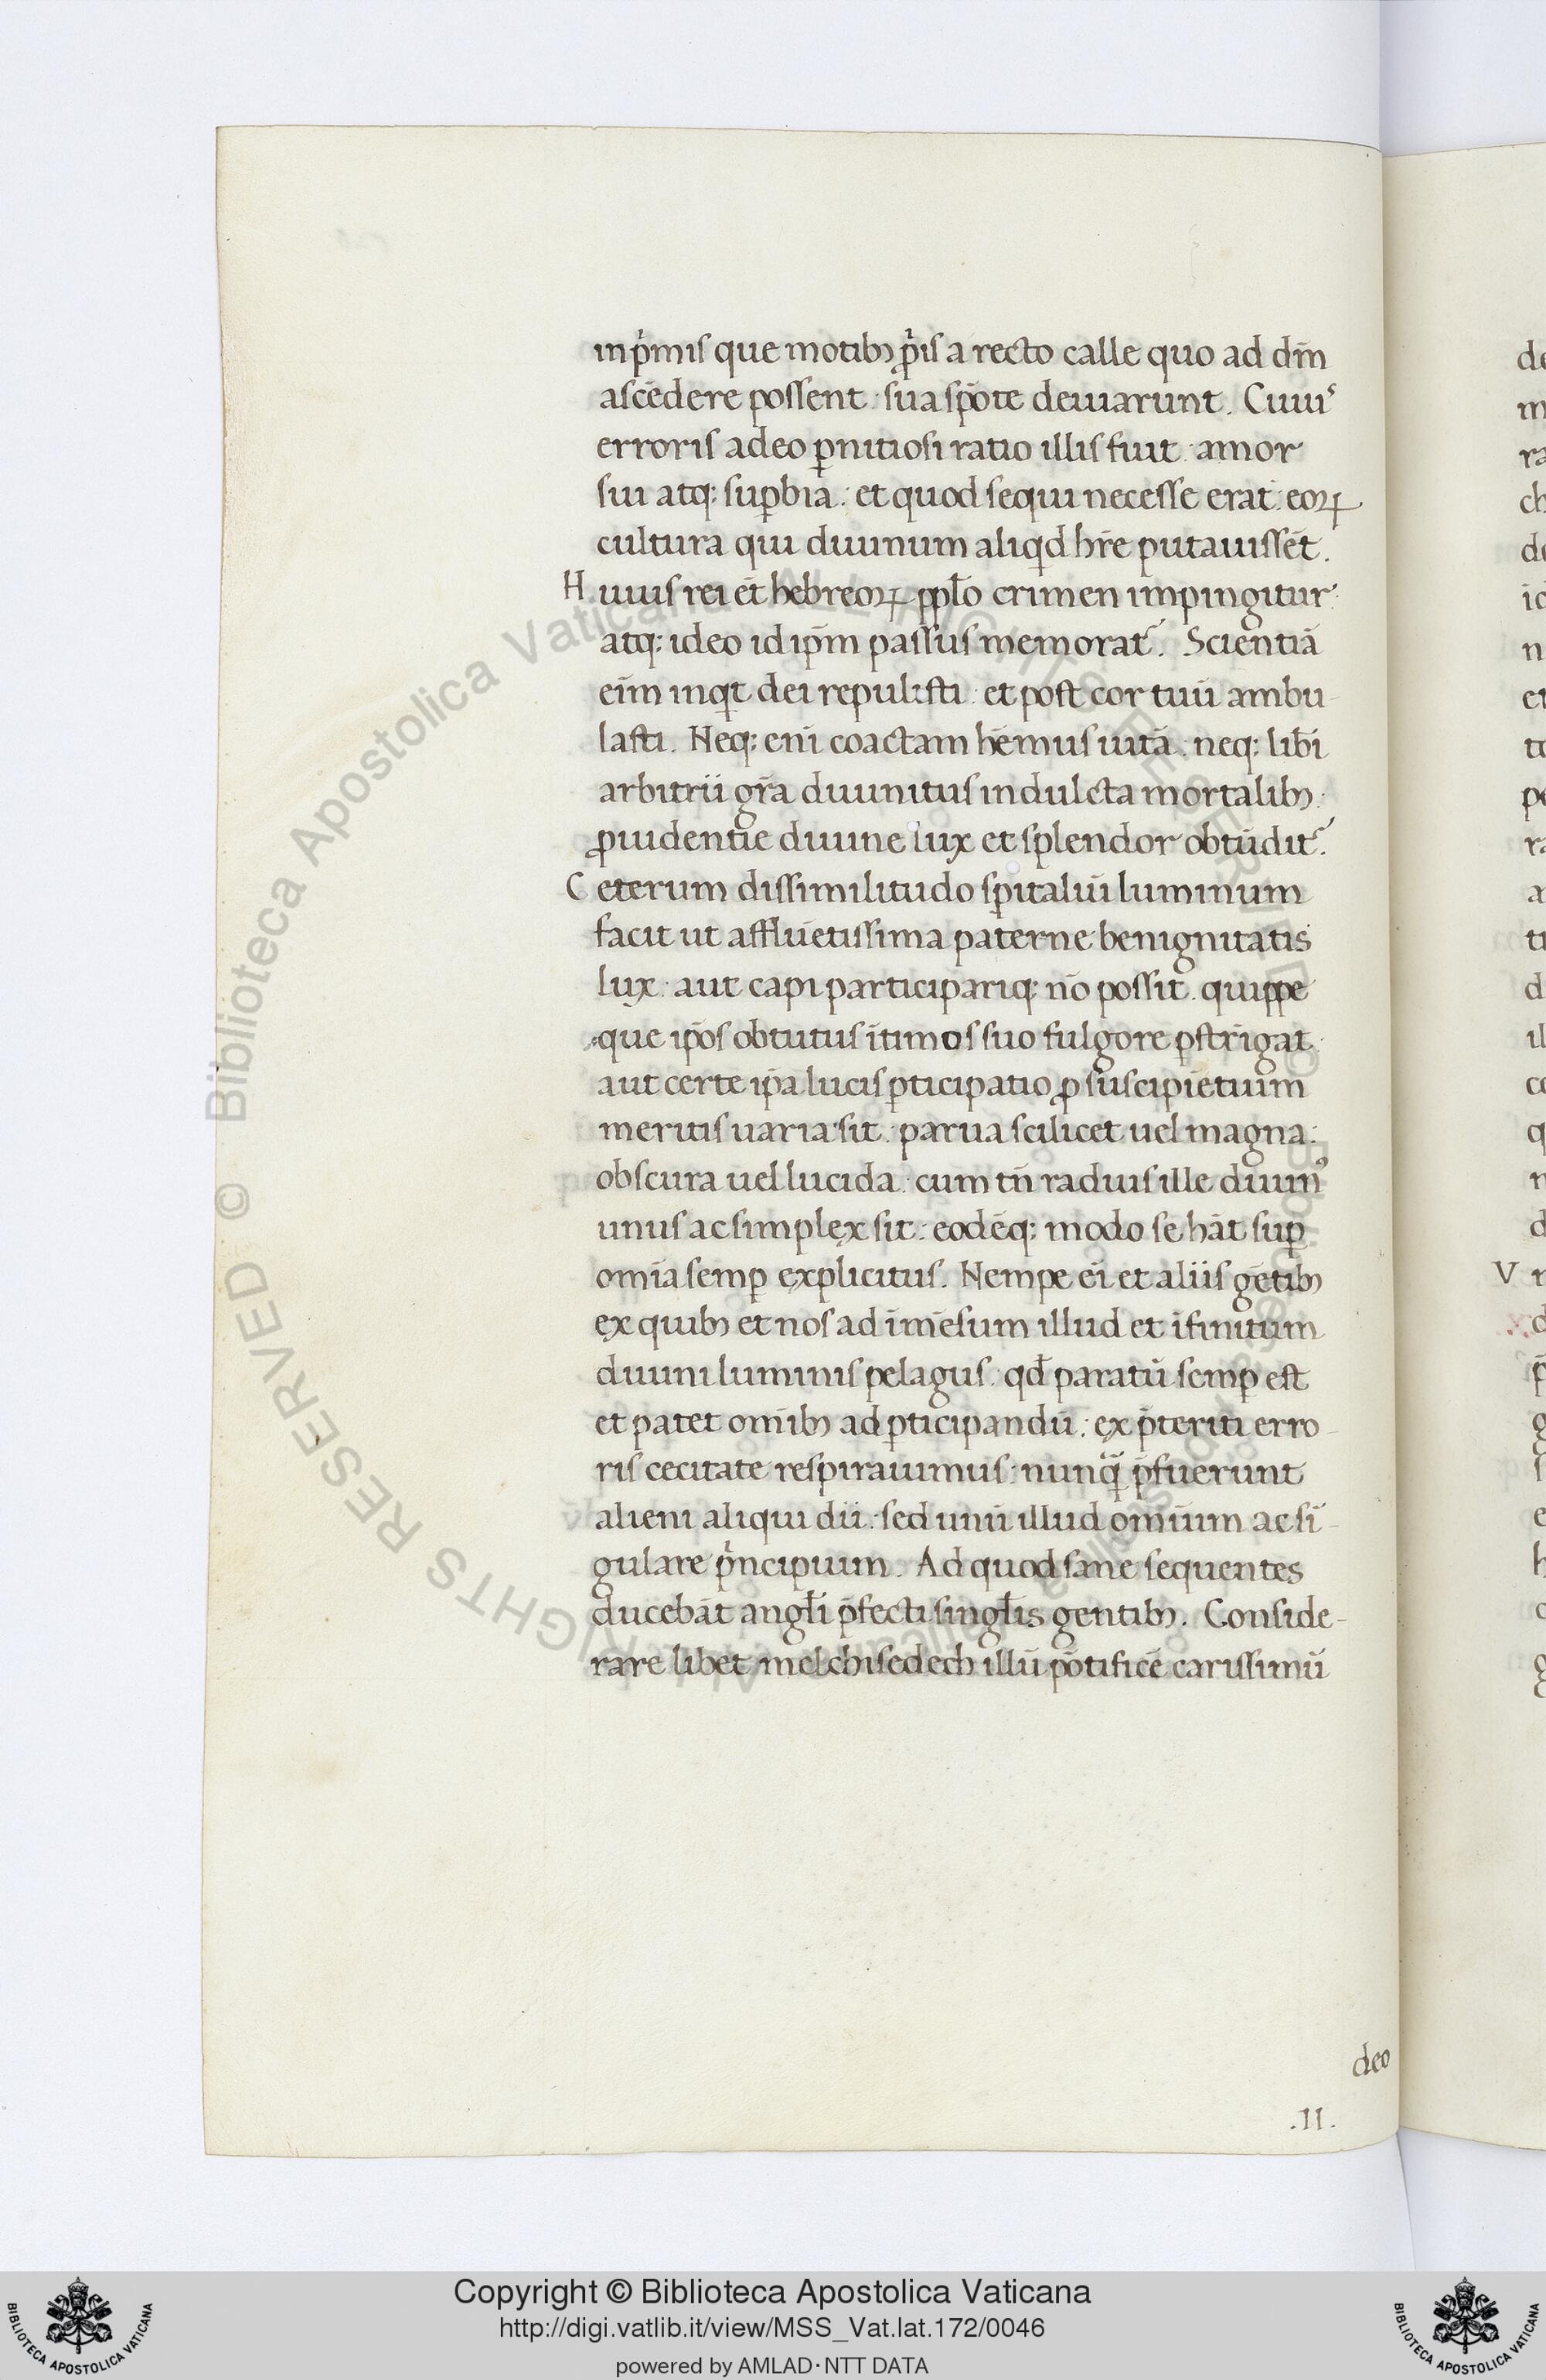 inp̍mis que motibꝫ ꝓ̍is a recto calle quo ad dn̄m
ascēdere possent : sua spōte deuiarunt. Cuiꝰ
erroris adeo ꝑnitiosi ratio illis fuit : amor
sui atqꝫ suꝑbia : et quod sequi necesse erat : eoꝝ
cultura qui diuinum aliqd hr̄e putauissēt.
Huius rei et̄ hebreoꝝ pplō crimen impingitur :
atqꝫ ideo id ip̄m passus memorat᷑. Scientiā
eīm inqt dei repulisti : et post cor tuū ambu-
lasti. Neqꝫ enī coactam hēmus uitā : neqꝫ lib̄i
arbitrii gr̄a diuinitus indulcta mortalibꝫ :
ꝓuidentie diuine lux et splendor obtūdit᷑.
Ceterum dissimilitudo sꝑitaliū luminum
facit ut afflūetissima paterne benignitatis
lux : aut capi participariqꝫ nō possit : quippe
que ip̄os obtutus ītimos suo fulgore ꝑstrīgat :
aut certe ip̄a lucis ꝑticipatio ꝓ suscipiētium
meritis uaria sit : parua scilicet uel magna :
obscura uel lucida : cum tn̄ radius ille diuinꝰ
unus ac simplex sit : eodēqꝫ modo se hāt suꝑ
omīa semꝑ explicitus. Nempe eī et aliis gētibꝫ
ex quibꝫ et nos ad īmēsum illud et īfinitum
diuini luminis pelagus : qd̄ paratū semꝑ est
et patet omībꝫ ad ꝑticipandū : ex p̄teriti erro-
ris cecitate respirauimus : nunq̄ p̄fuerunt
alieni aliqui dii : sed unū illud omīum ac sī-
gulare p̍ncipium. Ad quod sane sequentes
ducebāt angl̄i p̄fecti singl̄is gentibꝫ. Conside-
rare libet melchisedech illū pōtificē carissimū
deo
.II.
de
m
ra
ch
de
id
n
et
to
pe
ra
a
tu
d
il
co
q
n
d
V n
d
p̄
g
f
e
h
c
g
© Biblioteca Apostolica Vaticana
ALL RIGHTS RESERVED
Copyright © Biblioteca Apostolica Vaticana
http://digi.vatlib.it/view/MSS_Vat.lat.172/0046
powered by AMLAD·NTT DATA
BIBLIOTECA APOSTOLICA VATICANA
BIBLIOTECA APOSTOLICA VATICANA